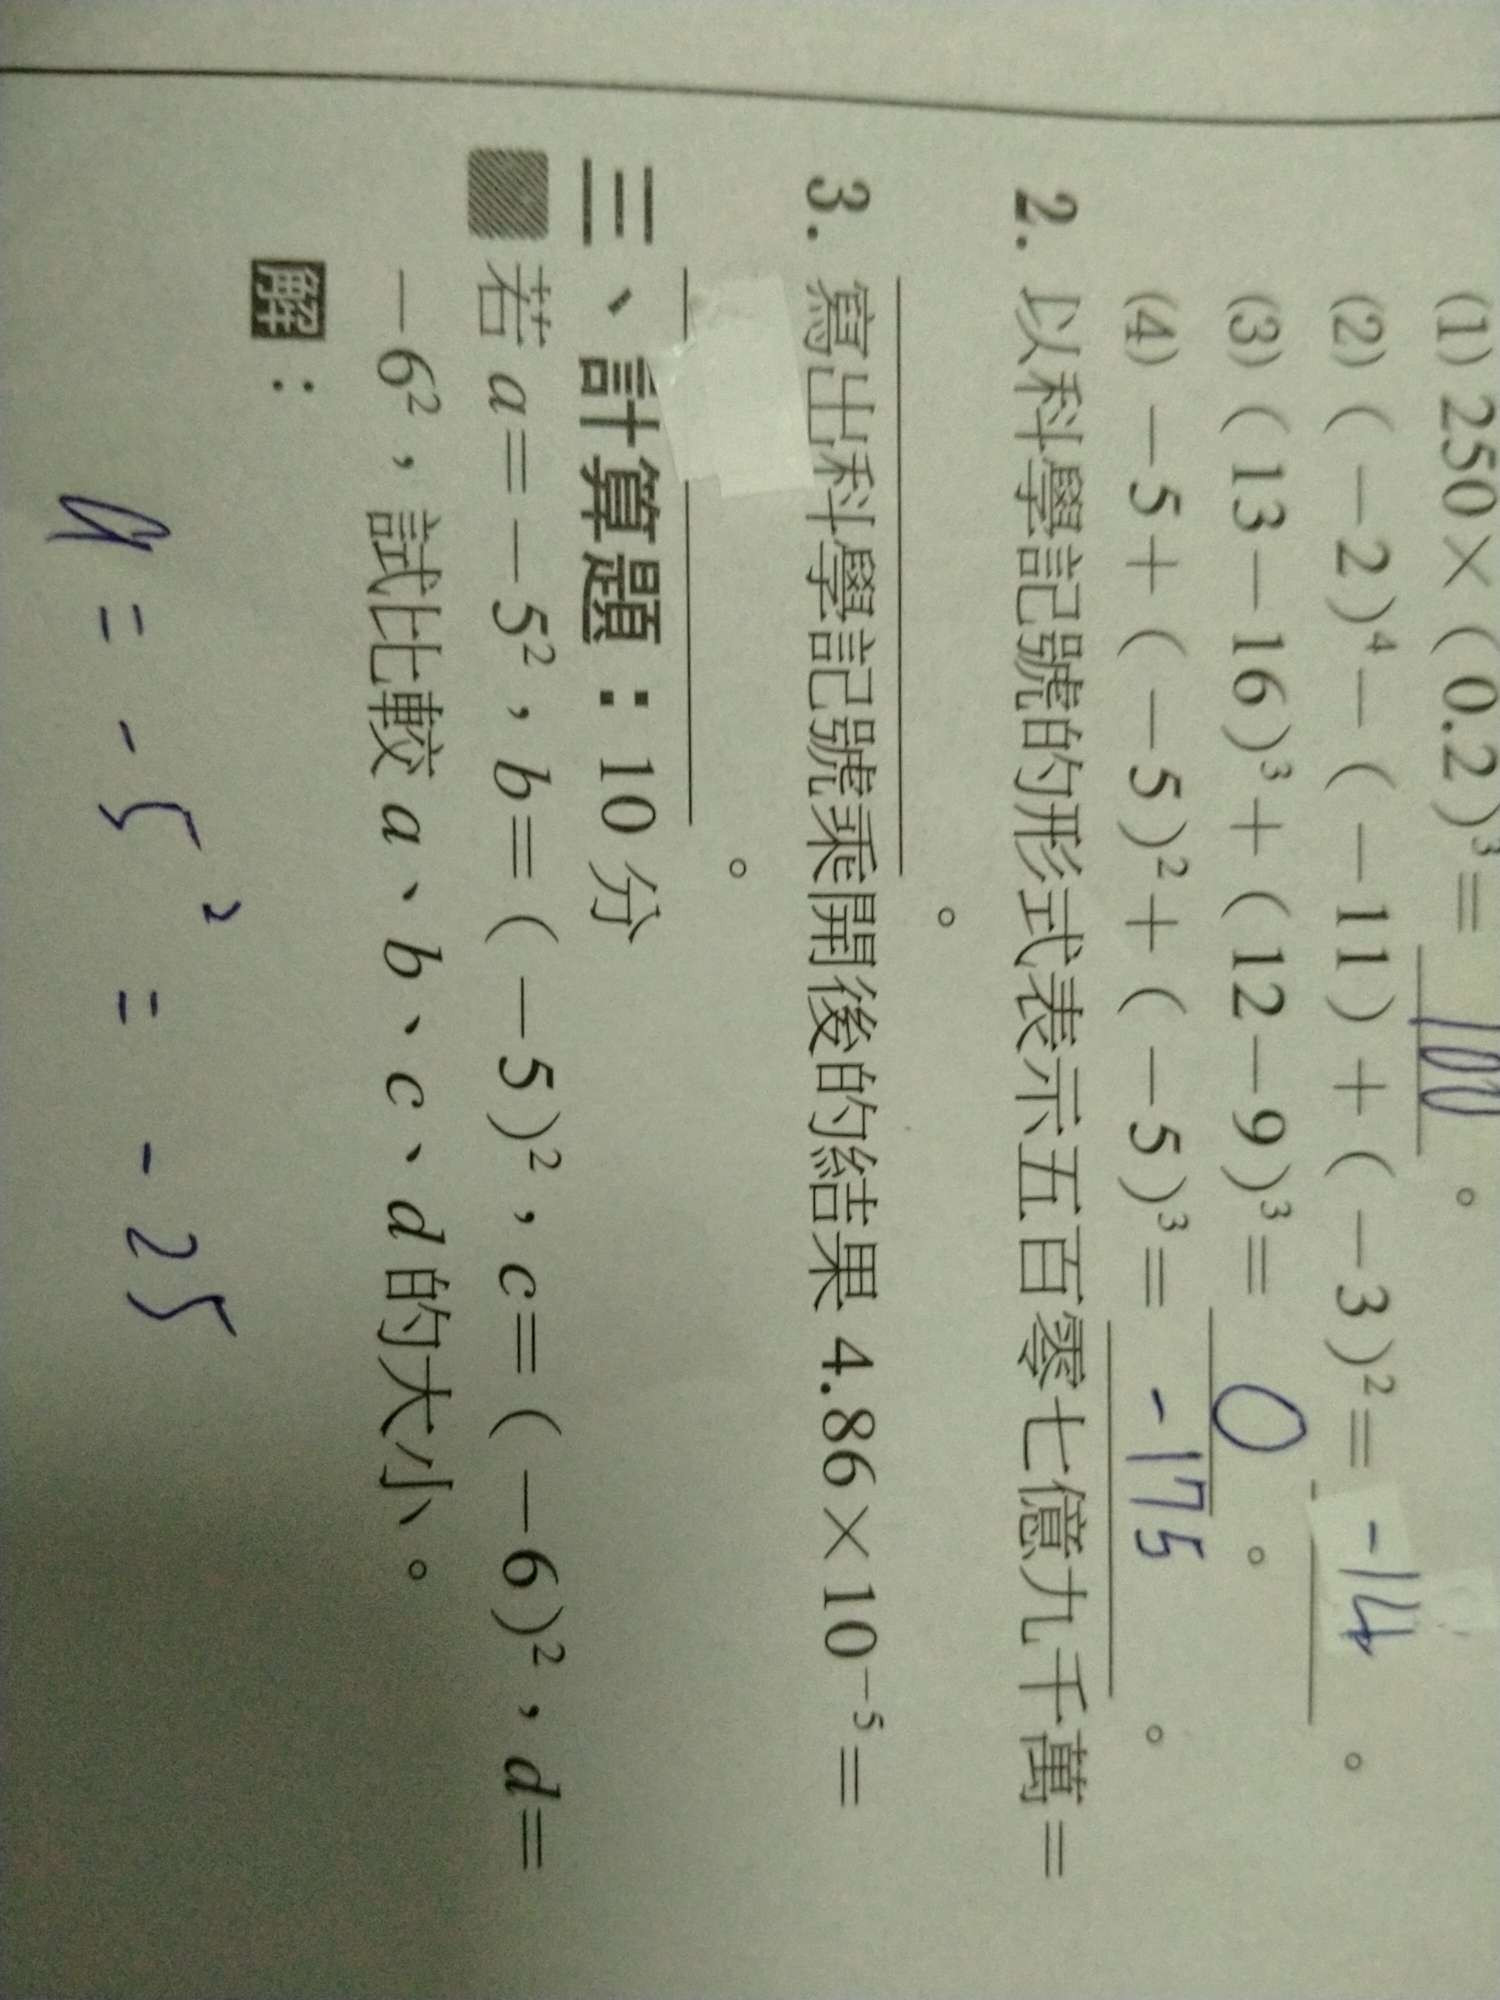 (1) 250×(0.2)³= 100 。
(2) (-2)⁴-(-11)+(-3)²= -14 。
(3) (13-16)³+(12-9)³= 0 。
(4) -5+(-5)²+(-5)³= -175 。
2. 以科學記號的形式表示五百零七億九千萬=
。
3. 寫出科學記號乘開後的結果 4.86×10⁻⁵=
。
三、計算題：10 分
若 a=-5²，b=(-5)²，c=(-6)²，d=
-6²，試比較 a、b、c、d 的大小。
解：
a = -5² = -25